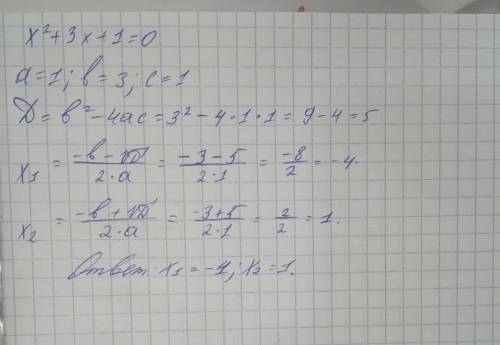 x²+3x+1=0
a=1; в=3; c=1
D=в²-4ac=3²-4·1·1=9-4=5
x₁ = (-в-√D)/(2·a) = (-3-5)/(2·1) = -8/2 = -4
x₂ = (-в+√D)/(2·a) = (-3+5)/(2·1) = 2/2 = 1.
Ответ: x₁=-4; x₂=1.